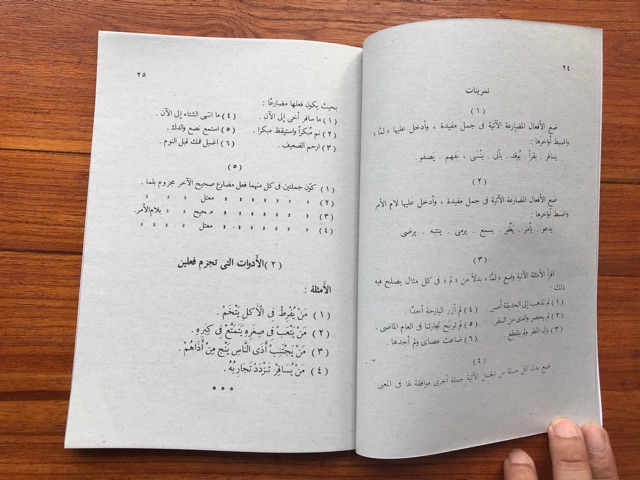 ٢٤
تمرينات
( ١ )
ضع الأفعال المضارعة الآتية فى جمل مفيدة ، وأدخل عليها « لمّا »
واضبط أواخرها :
يسافر . يقرأ . يُوقد . يأتى . يَنْسَى . تفهم . يَصفو .
( ٢ )
ضع الأفعال المضارعة الآتية فى جمل مفيدة ، وأدخل عليها لام الأمر
واضبط أواخرها :
يدعو . يأمر . يُغْير . يسمع . يرمى . ينتبه . يرضى
( ٣ )
اقرأ الأمثلة الآتية وضع « لمّا » بدلاً من « لم » فى كل مثال يصلح فيه
ذلك :
( ١ ) لم نذهب إلى الحديقة أمس .
( ٤ ) لم أزُر البارحة أحدًا .
( ٢ ) لم يحضر والدى من السفر
( ٥ ) لم تَرْبَح تجارتنا فى العام الماضى .
( ٣ ) نزل المطر ولم ينقطع
( ٦ ) ضاعت عصاى ولم أجدها .
( ٤ )
ضع بدل كل جملة من الجمل الآتية جملة أخرى موافقة لها فى المعنى
٢٥
بحيث يكون فعلها مضارعًا :
( ١ ) ما سافر أخى إلى الآن .
( ٤ ) ما انتهى الشتاء إلى الآن .
( ٢ ) نم مُبكراً واستيقظ مبكرا .
( ٥ ) استمع نصح والدك .
( ٣ ) ارحم الضعيف .
( ٦ ) اغسل فمك قبل النوم .
( ٥ )
( ١ ) كوّن جملتين فى كل منهما فعل مضارع صحيح الآخر مجزوم بلما .
( ٢ ) » » » » » » » معتل » » »
( ٣ ) » » » » » » » صحيح » » بلام الأمر.
( ٤ ) » » » » » » » معتل » » »
( ٢ ) الأدوات التى تجزم فعلين
الأمثلة :
( ١ ) مَنْ يُفْرِطْ فِى الأكلِ يَتْخَمْ .
( ٢ ) مَنْ يَتْعَبْ فِى صِغَرِهِ يَتَمَتَّعْ فِى كِبَرِهِ .
( ٣ ) مَنْ يَجْتَنِبْ أَذَى النَّاسِ يَنْجُ مِنْ أَذَاهُمْ .
( ٤ ) مَنْ يُسَافِرْ تَزْدَدْ تَجَارِبُهُ .
* * *